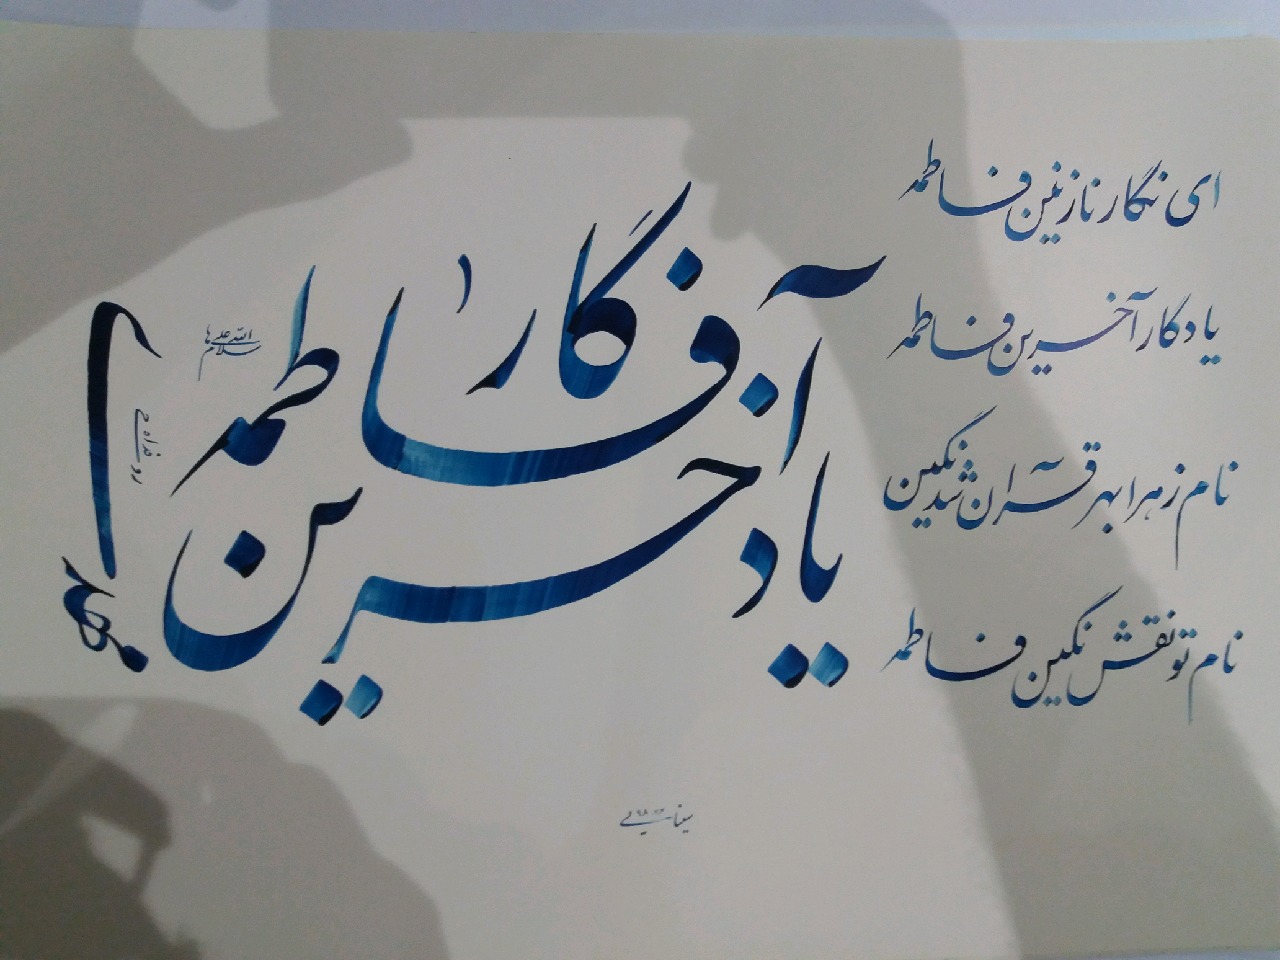 ای نگار نازنین فاطمه
یادگار آخرین فاطمه
نام زهرا بهر قرآن شد نگین
نام تو نقش نگین فاطمه
یادگار آخرین فاطمه
سلام الله علیها
روحی فداه
مهدی